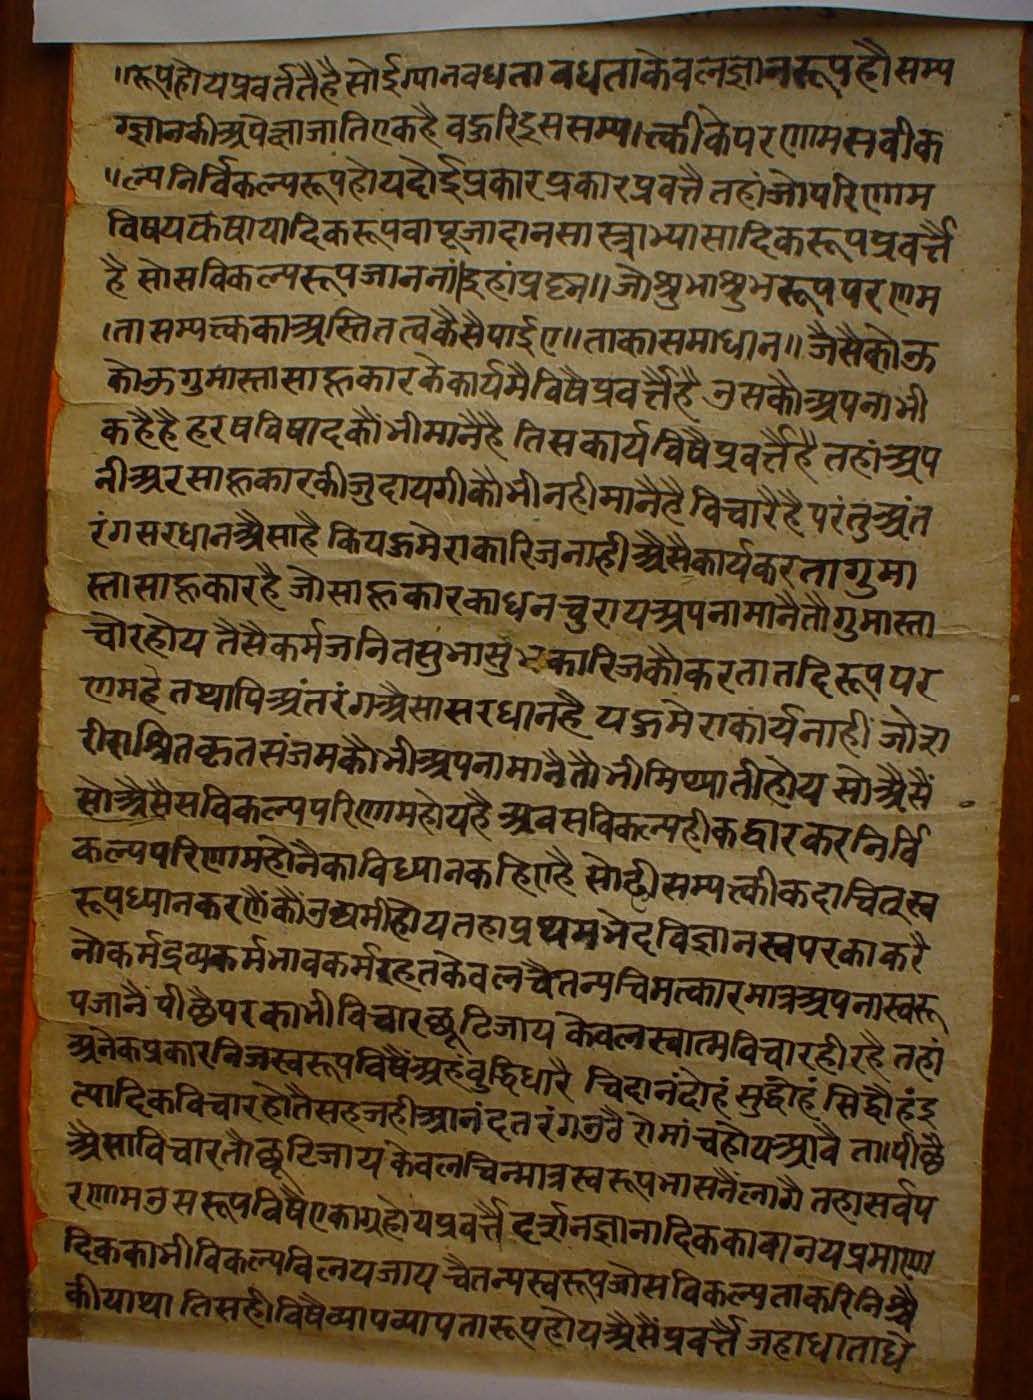 ॥रूपहोयप्रवर्ततैहै सोईग्यानवधता वधताकेवलज्ञानरूपहौ सम्य
ग्ज्ञानकीअपेज्ञाजातिएकहै वङरिइससम्य।त्कीकेपरणामसवीक
॥ल्पनिर्विकल्परूपहोयदोईप्रकारप्रकारप्रवर्त्तै तहांजोपरिणाम
विषयकषायादिकरूपवापूजादानसास्त्राभ्यासादिकरूपप्रवर्त्तै
है सोसविकल्परूपजाननां।इहांप्रष्ट्न॥जोश्रुभाश्रुभरूपपरणम
।तासम्यत्ककाअस्तितत्वकैसैपाईए॥ताकासमाधान॥जैसैकोऊ
कोऊगुमास्तासाहूकारकेकार्यमैविषैप्रवर्त्तैहै उसकौअपनाभी
कहैहै हरषविषादकौंभीमानैहै तिसकार्यविषैप्रवर्त्तैहै तहांअप
नीअरसाहूकारकीजुदायगीकौभीनहीमानैहै विचारैहै परंतुअंत
रंगसरधानअैसाहै कियङमेराकारिजनाहीअैसैकार्यकरतागुमा
स्तासाहूकारहै जोसाहूकारकाधनचुरायअपनामानैतौगुमास्ता
चोरहोय तैसैकर्मजनितसुभासुभकारिजकौकरतातदिरूपपर
णमहै तथापिअंतरंगअैसासरधानहै यङमेराकार्यनाहीं जोरा
रीराश्रितकृतसंजमकौभीअपनामानैतौभीमिथ्यातीहोय सोअैसैं
सोअैसैसविकल्पपरिणामहोयहै अवसविकल्पहीकद्वारकरनिर्वि
कल्पपरिणामहोनैकाविध्यानकहिएहै सोहीसम्यत्कीकदाचित्स्व
रूपध्यानकरणैकौंउद्यमीहोयतहाप्रथमभेदविज्ञानस्वपरकाकरै
नोकर्मद्रव्यकर्मभावकर्मरहतकेवलचैतन्यचिमत्कारमात्रअपनास्वरू
पजानै पीछैपरकाभीविचारछूटिजाय केवलस्वात्मविचारहीरहै तहां
अनेकप्रकारनिजस्वरूपविषैअहंवुद्धिधारै चिदानंदोहं सुद्धोहं सिद्धोहंइ
त्यादिकविचारहोतैसहजहीआनंदतरंगउठै रोमांचहोयआवै ता।पीछै
अैसाविचारतौछूटिजाय केवलचिन्मात्रस्वरूपभासनैंलागै तहासर्वप
रणामउसरूपविषैएकाग्रहोयप्रवर्त्तै दर्शनज्ञानादिककावानयप्रमाण
दिककाभीविकल्पविलयजाय चैतन्यस्वरूपजोसविकल्पताकरिनिश्चै
कीयाथा तिसहीविषैव्यापव्यापतारूपहोयअैसैंप्रवर्त्तै जहाधाताधे